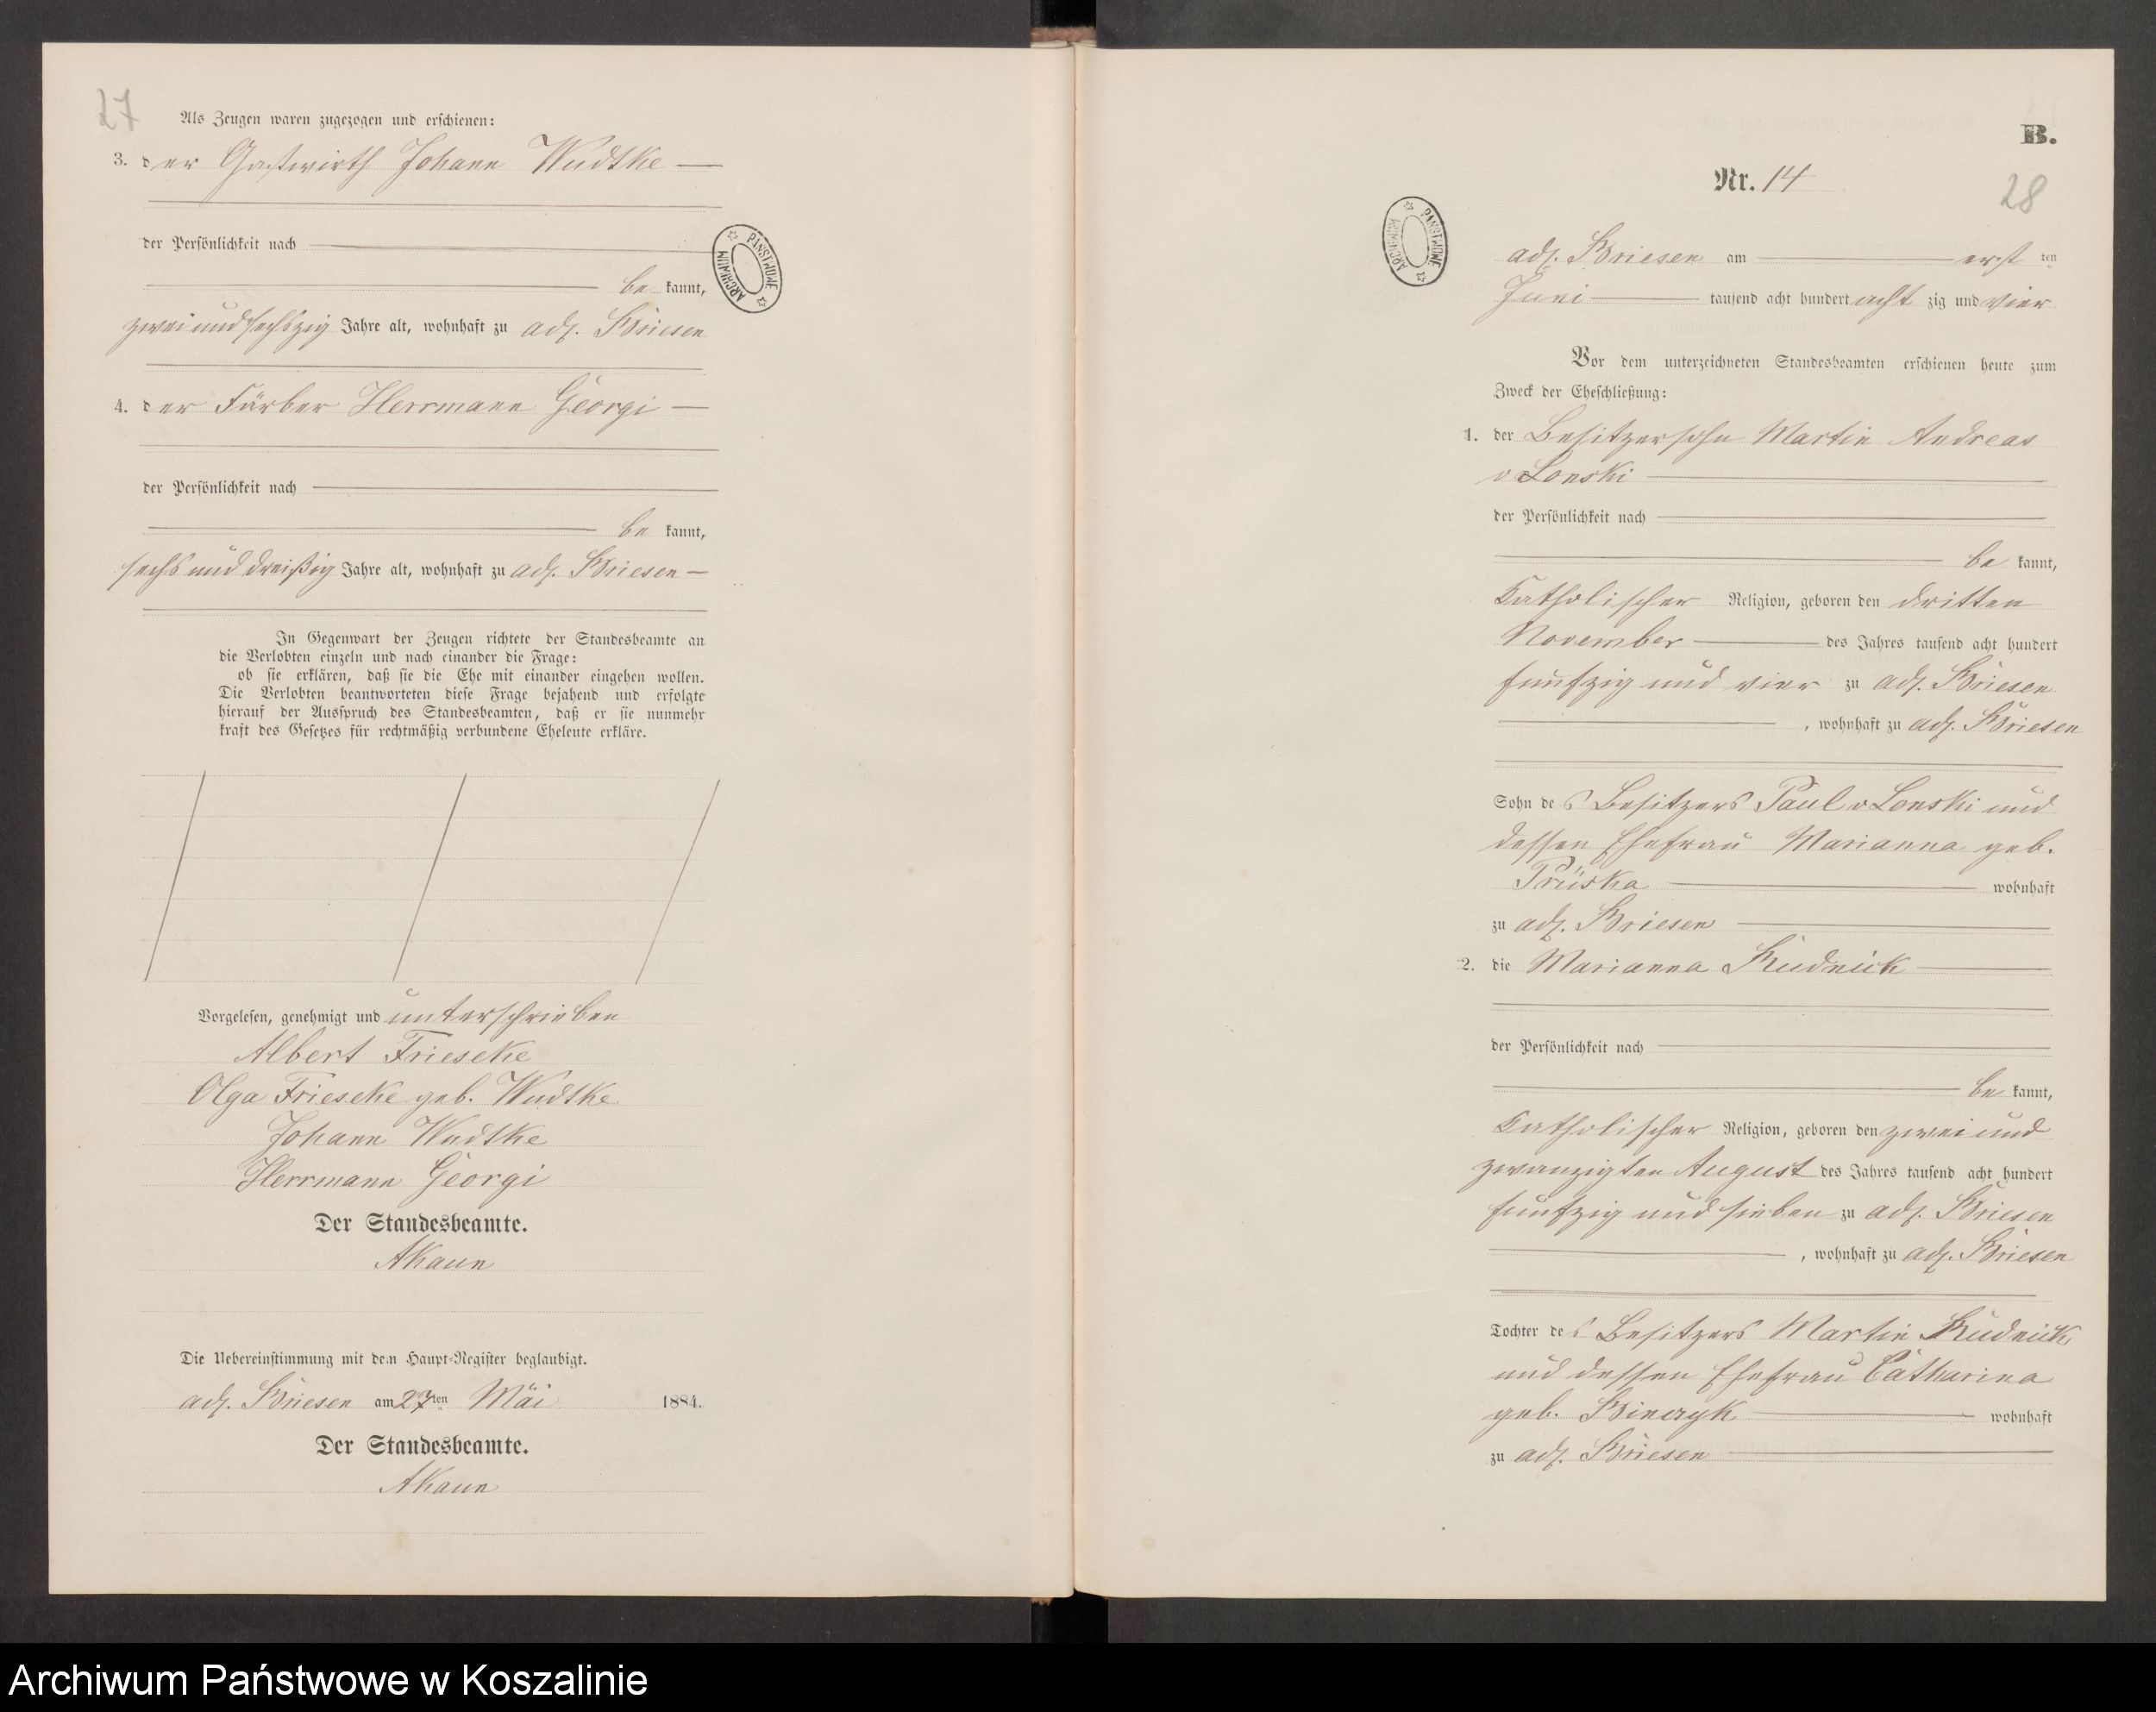 27
Als Zeugen waren zugezogen und erschienen:
3. der Gastwirth Johann Wudtke
der Persönlichkeit nach
be kannt,
zwei und sechszig Jahre alt, wohnhaft zu adl. Briesen
4. der Färber Herrmann Georgi
der Persönlichkeit nach
be kannt,
sechs und dreißig Jahre alt, wohnhaft zu adl. Briesen
In Gegenwart der Zeugen richtete der Standesbeamte an
die Verlobten einzeln und nach einander die Frage:
ob sie erklären, daß sie die Ehe mit einander eingehen wollen.
Die Verlobten beantworteten diese Frage bejahend und erfolgte
hierauf der Ausspruch des Standesbeamten, daß er sie nunmehr
kraft des Gesetzes für rechtmäßig verbundene Eheleute erkläre.
Vorgelesen, genehmigt und unterschrieben
Albert Frieseke
Olga Frieseke geb. Wudtke
Johann Wudtke
Herrmann Georgi
Der Standesbeamte.
Die Uebereinstimmung mit dem Haupt-Register beglaubigt.
adl. Briesen am 27ten Mai 1884.
Der Standesbeamte.
ARCHIWUM PAŃSTWOWE
B.
Nr. 14
28
ARCHIWUM PAŃSTWOWE
adl. Briesen am erst ten
Juni tausend acht hundert acht zig und vier
Vor dem unterzeichneten Standesbeamten erschienen heute zum
Zweck der Eheschließung:
1. der Besitzersohn Martin Andreas
v Lonski
der Persönlichkeit nach
be kannt,
Katholischer Religion, geboren den dritten
November des Jahres tausend acht hundert
funfzig und vier zu adl. Briesen
, wohnhaft zu adl. Briesen
Sohn des Besitzers Paul v Lonski und
dessen Ehefrau Marianna geb.
wohnhaft
zu adl. Briesen
2. die Marianna Rudnick
der Persönlichkeit nach
be kannt,
Katholischer Religion, geboren den zwei und
zwanzigsten August des Jahres tausend acht hundert
funfzig und sieben zu adl. Briesen
, wohnhaft zu adl. Briesen
Tochter des Besitzers Martin Rudnick
und dessen Ehefrau Catharina
geb. wohnhaft
zu adl. Briesen
Archiwum Państwowe w Koszalinie